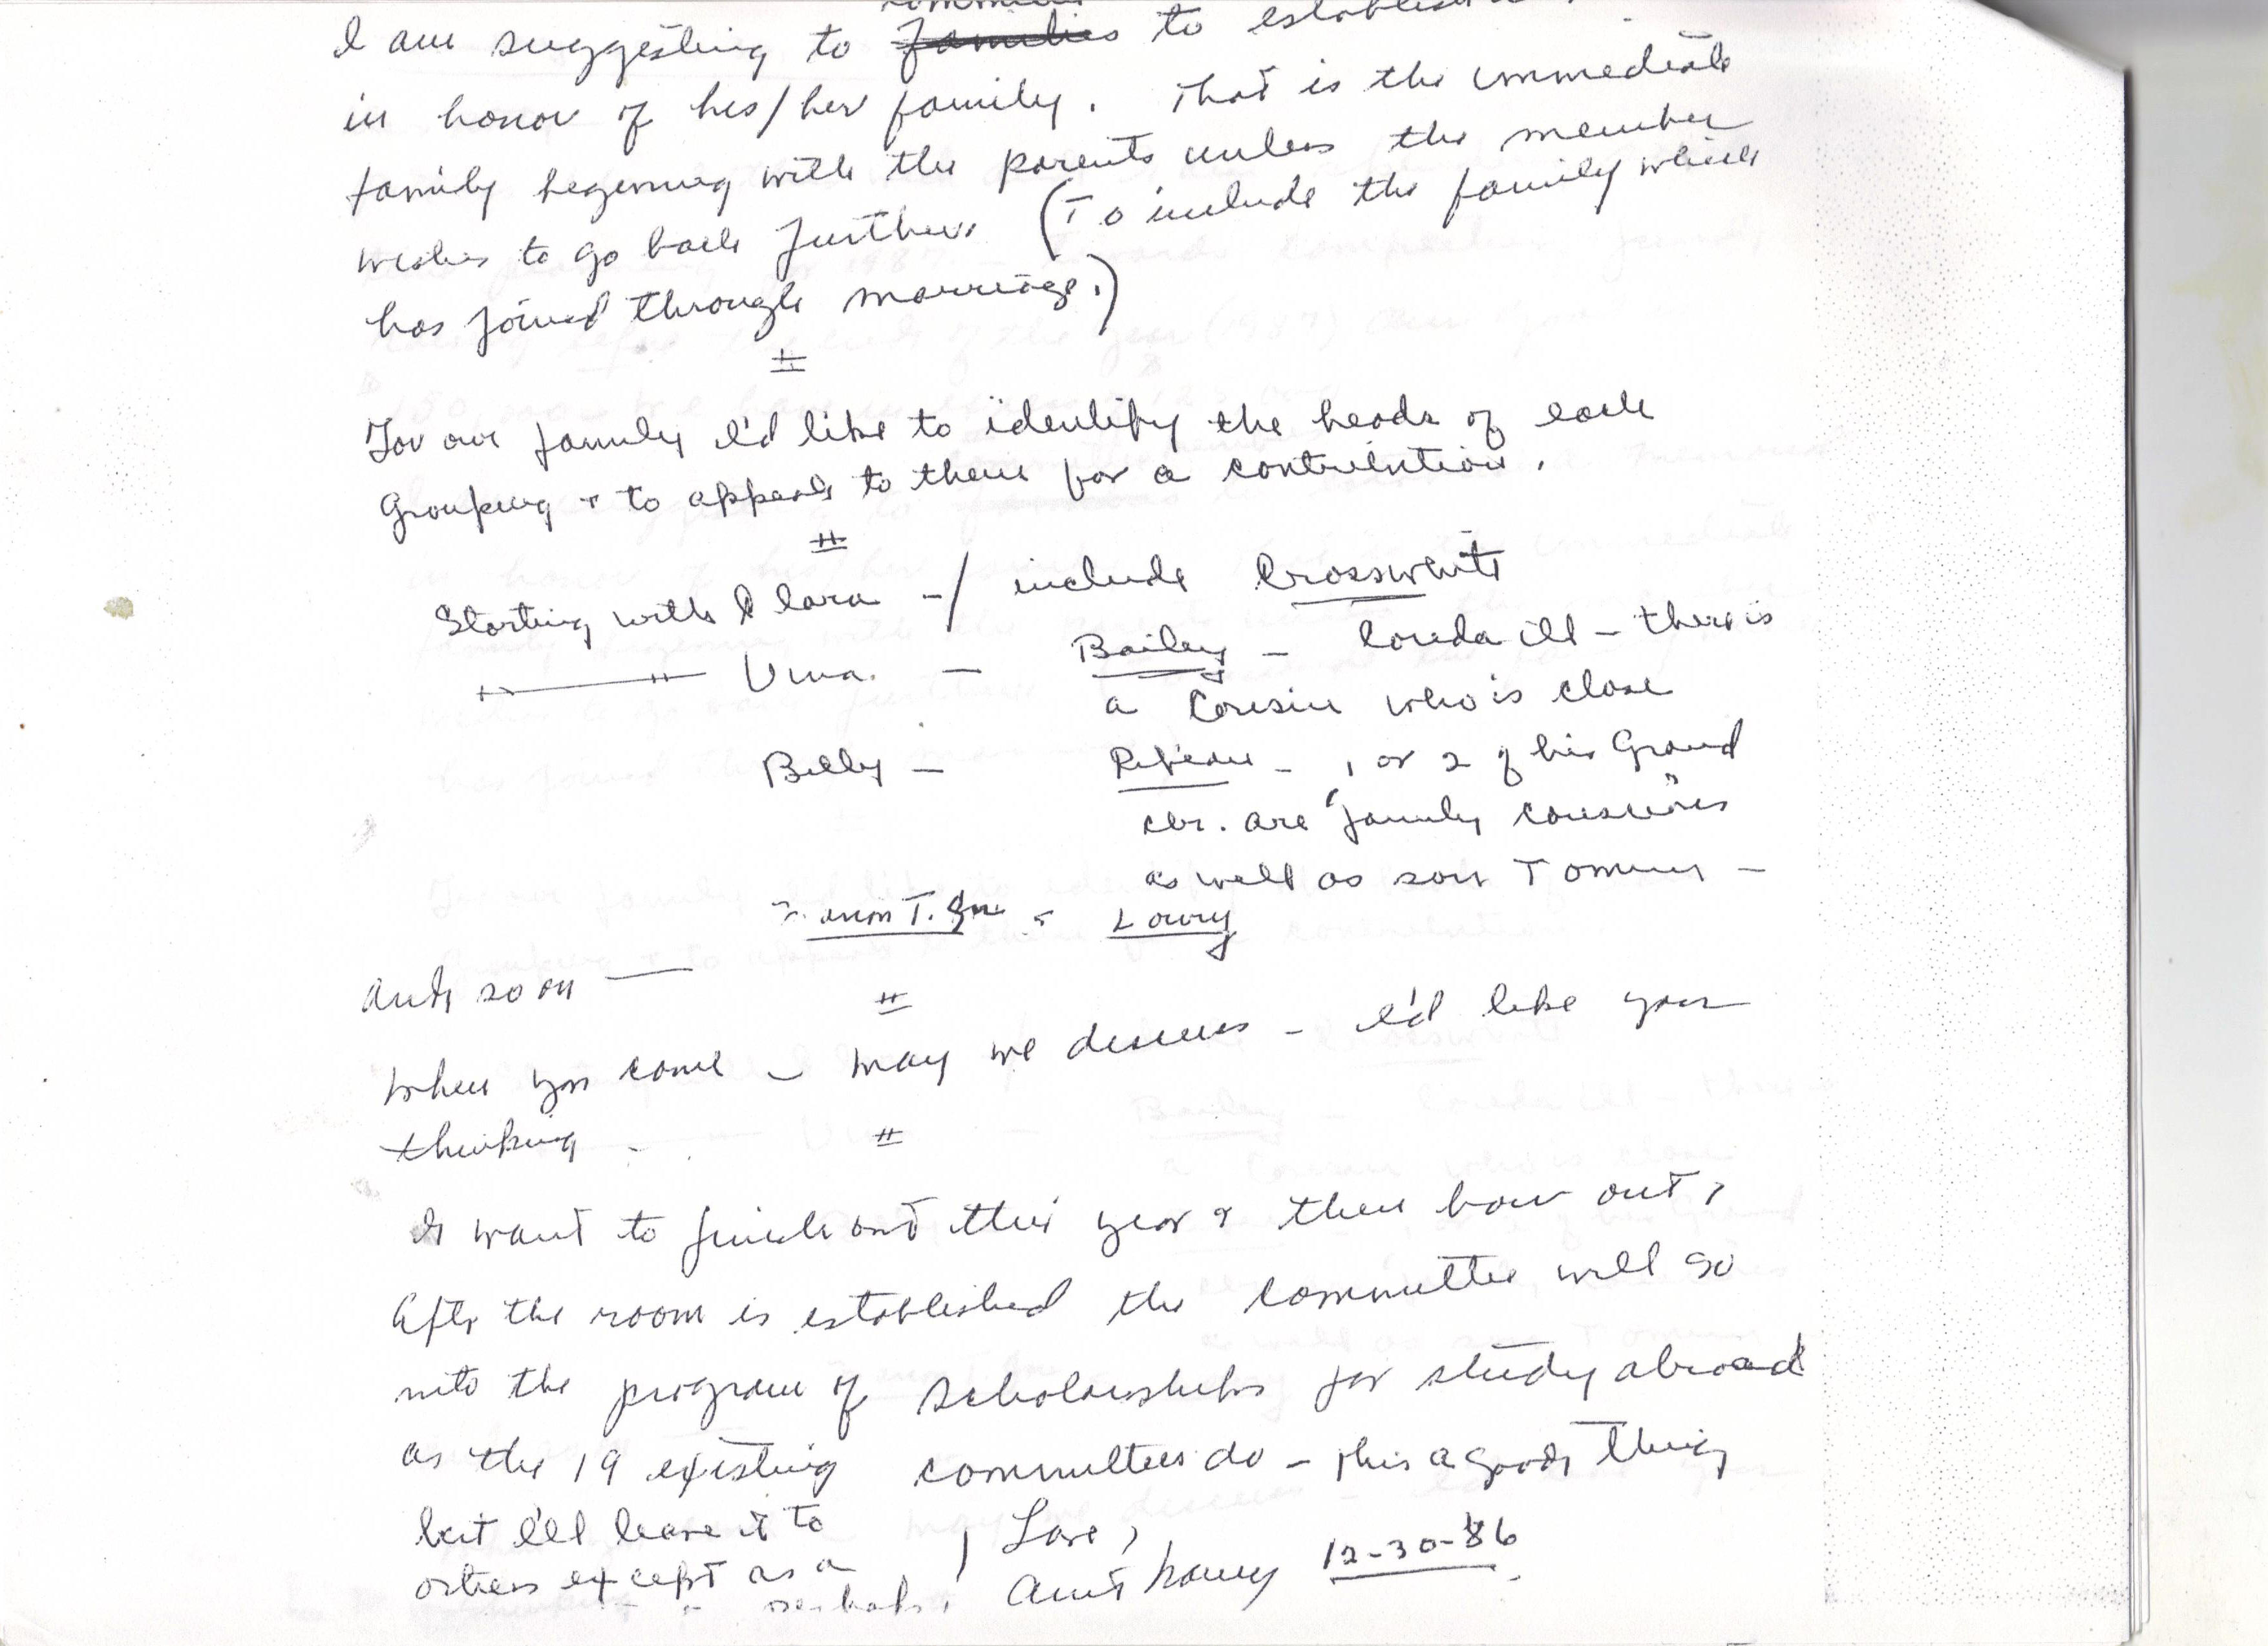 I am suggesting to families to
in honor of his/her family. That is the immediate
family beginning with the parents unless the member
wishes to go back further. (To include the family which
has joined through marriage.)
#
For our family I'd like to identify the heads of each
Grouping & to appeal to them for a contribution.
#
Starting with Clara -/ include Crosswhite
" " Uma. - Bailey - Loreda ill - there is
a Cousin who is close
Billy - 1 or 2 of his Grand
chr. are "family conscious"
as well as son Tommy -
T. Jr. - Lowry
and so on —
#
When you come - may we discuss - I'd like your
thinking -
#
I want to finish out this year & then bow out,
After the room is established the committee will go
into the program of scholarships for study abroad
as the 19 existing committees do - this a good thing
but I'll leave it to
others except as a
perhaps. Love,
Aunt 12-30-86